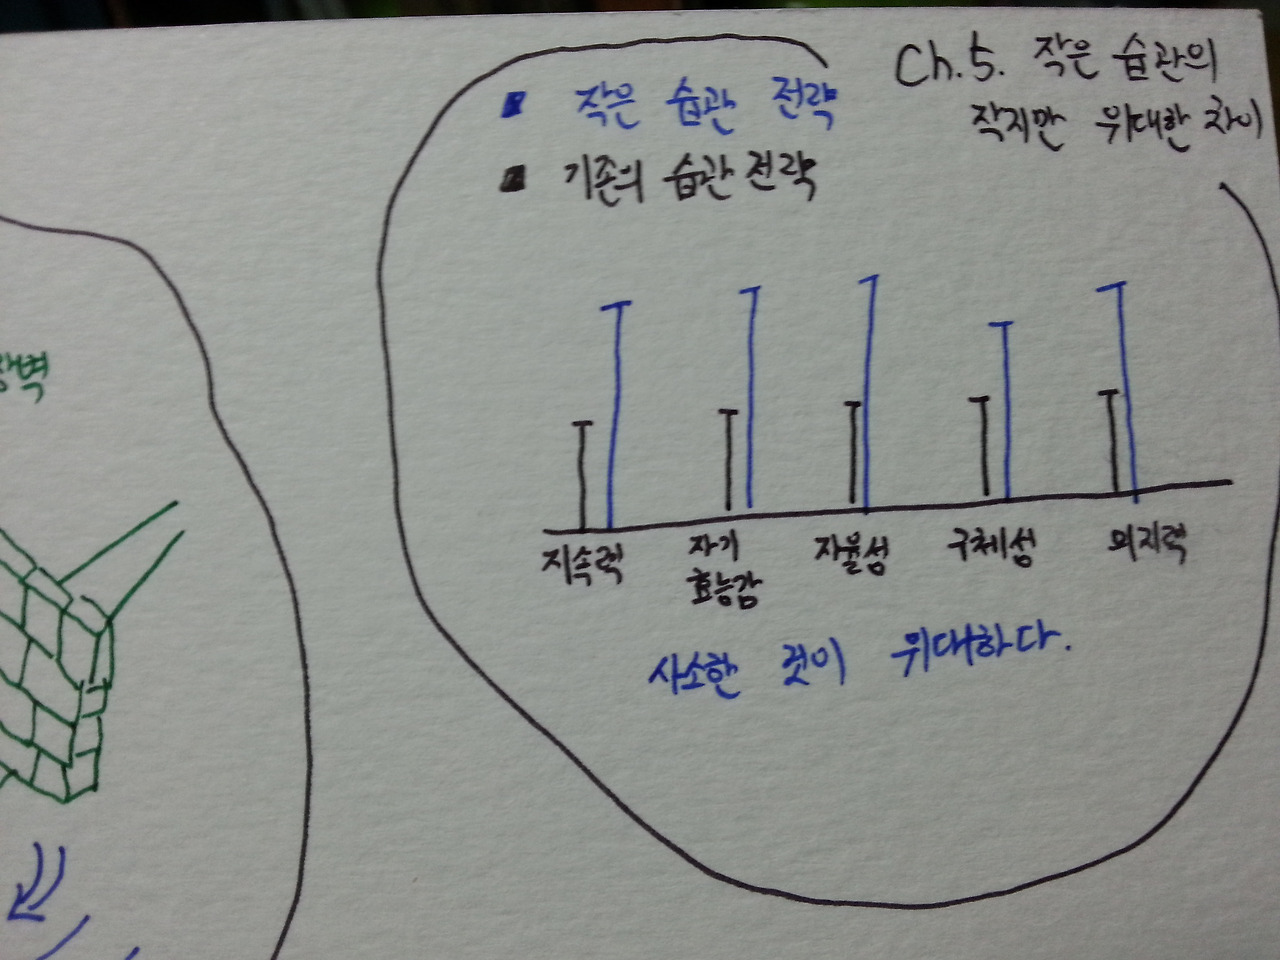 Ch.5. 작은 습관의
작지만 위대한 차이
작은 습관 전략
기존의 습관 전략
지속력
자기
효능감
자율성
구체성
의지력
사소한 것이 위대하다.